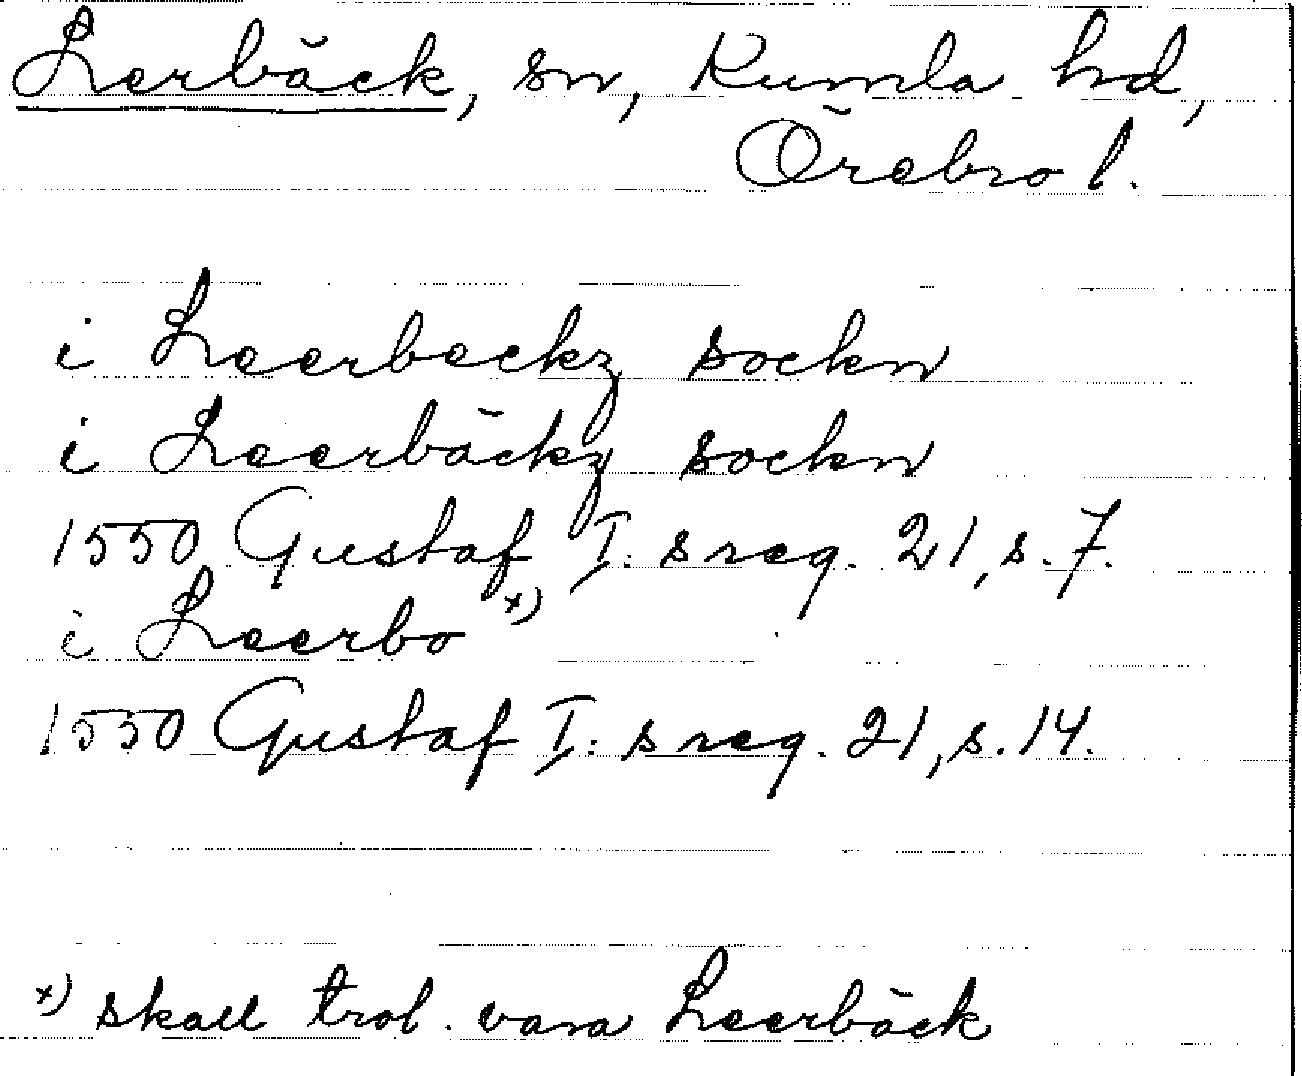 Lerbäck, sn, Kumla hd,
Örebro l.
i Leerbeckz sockn
i Leerbäckz sockn
1550 Gustaf I: s reg. 21, s. 7.
i Leerbo x)
1550 Gustaf I: s reg. 21, s. 14.
x) skall trol. vara Leerbäck